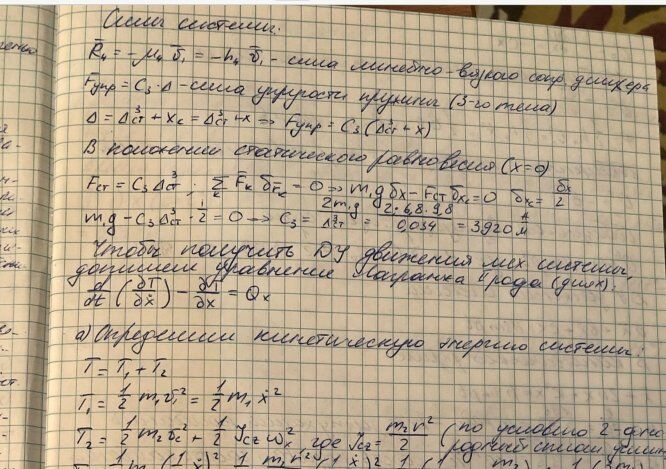 Силы системы:
R̄₄ = -μ₄ v̄₁ = -h₄ v̄₁ - сила линейно-вязкого сопр. демпфера
F̄упр = C₃·Δ - сила упругости пружины (3-го тела)
Δ = Δ³ст + xc = Δ³ст + x => Fупр = C₃(Δ³ст + x)
В положении статического равновесия (x=0)
Fст = C₃ Δ³ст ; Σ F̄к δr̄к = 0 => m₁g δx - Fст δxc = 0 δxc = δx/2
m₁g - C₃ Δ³ст · 1/2 = 0 -> C₃ = 2m₁g/Δ³ст = 2·6,8·9,8/0,034 = 3920 Н/м
Чтобы получить ДУ движения мех системы,
допишем уравнение Лагранжа II рода (для x):
d/dt (∂T/∂ẋ) - ∂T/∂x = Qx
а) Определим кинетическую энергию системы:
T = T₁ + T₂
T₁ = 1/2 m₁ v₁² = 1/2 m₁ ẋ²
T₂ = 1/2 m₂ vc² + 1/2 Jcz ω², где Jcz = m₂r²/2 (по условию 2-
родный сплошн